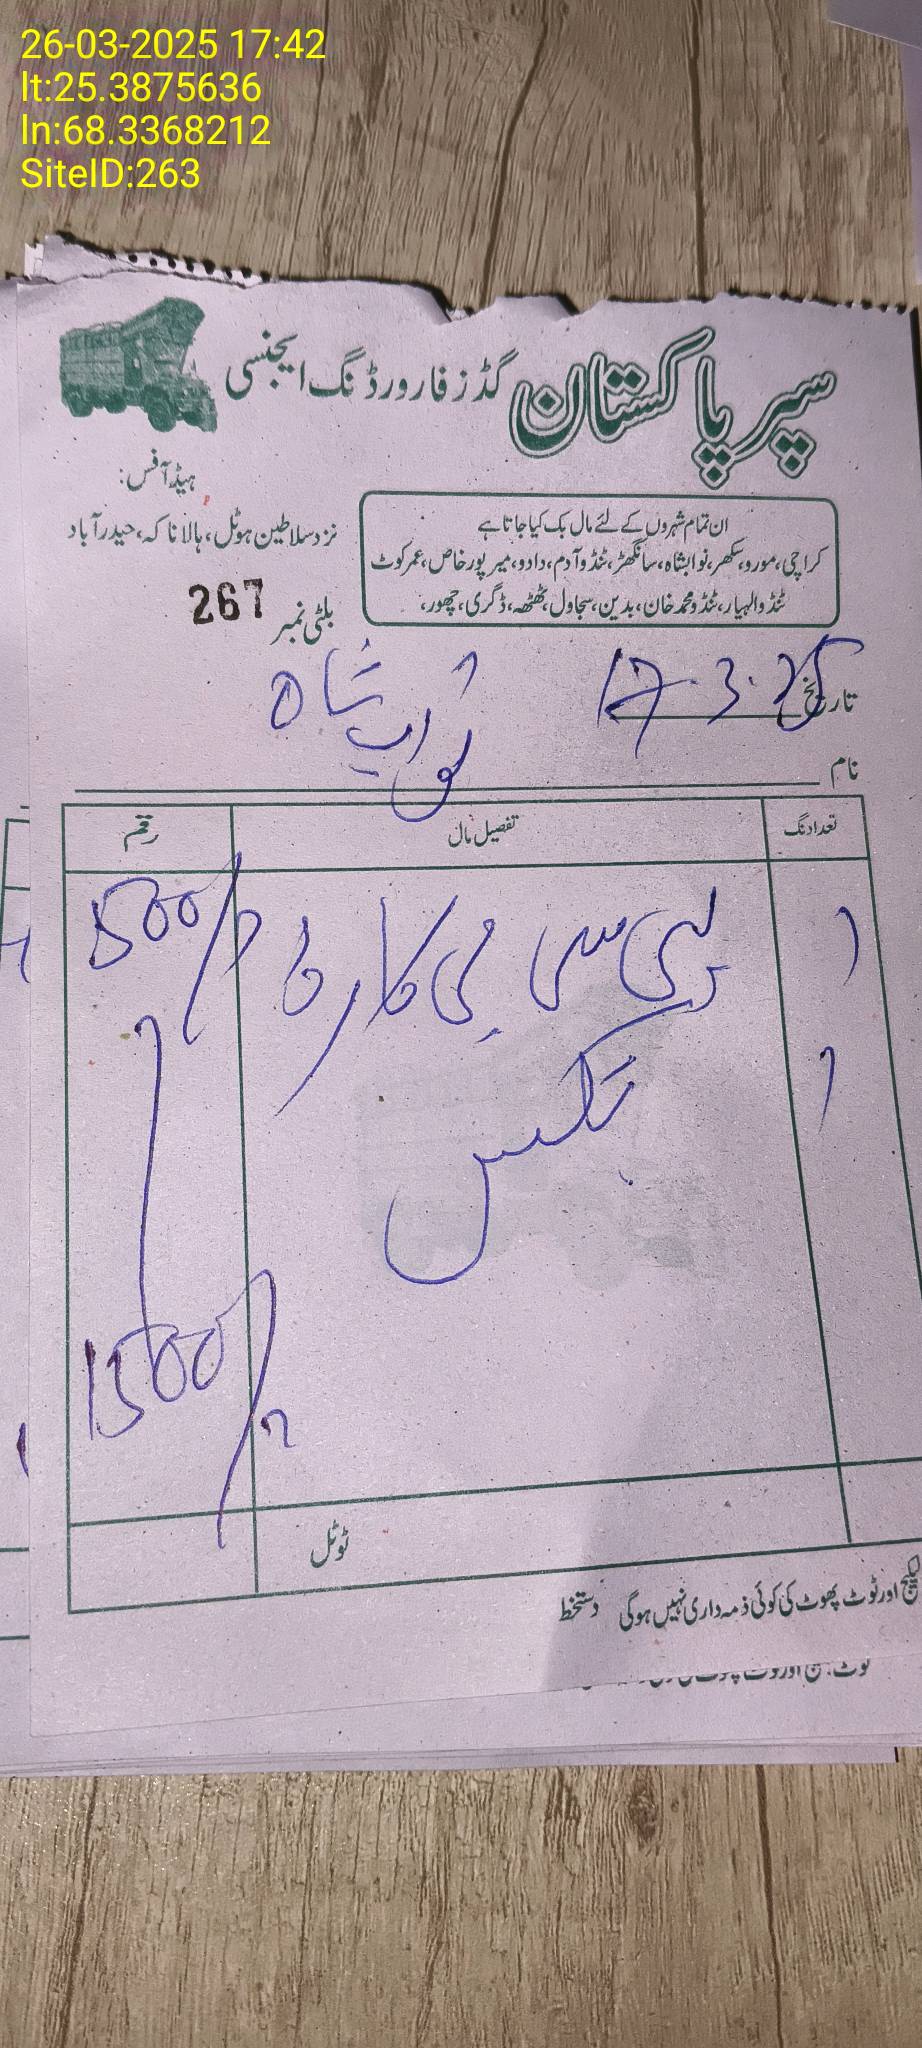 26-03-2025 17:42
lt:25.3875636
ln:68.3368212
SiteID:263
سپر پاکستان گڈز فارورڈنگ ایجنسی
ہیڈ آفس:
نزد سلاطین ہوٹل، ہالا ناکہ، حیدرآباد
ان تمام شہروں کے لئے مال بک کیا جاتا ہے
کراچی، مورو، سکھر، نوابشاہ، سانگھڑ، ٹنڈو آدم، دادو، میرپور خاص، عمرکوٹ
ٹنڈوالہیار، ٹنڈو محمد خان، بدین، سجاول، ٹھٹھہ، ڈگری، چھور،
بلٹی نمبر 267
تاریخ 17.3.25
نواب شاہ
نام
تعداد نگ تفصیل مال رقم
۱ پی سی بی کارڈ 1500/
۱ بکس
1500/
ٹوٹل
لیکج اور ٹوٹ پھوٹ کی کوئی ذمہ داری نہیں ہوگی دستخط